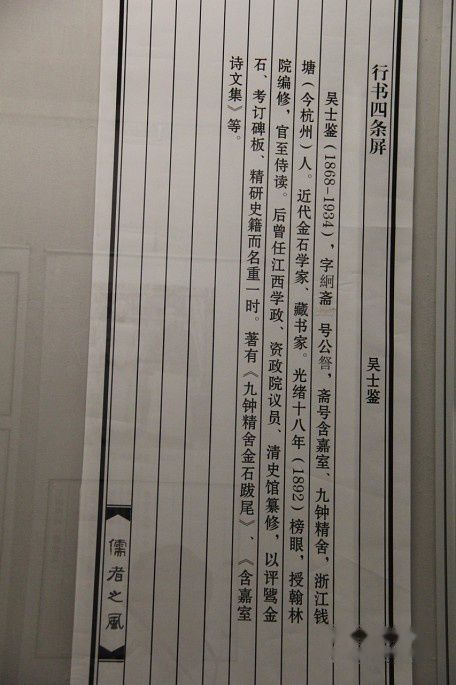 行书四条屏
吴士鉴
吴士鉴（1868-1934），字絅斋 号公詧，斋号含嘉室、九钟精舍，浙江钱
塘（今杭州）人。近代金石学家、藏书家。光绪十八年（1892）榜眼，授翰林
院编修，官至侍读。后曾任江西学政、资政院议员、清史馆纂修，以评骘金
石、考订碑板、精研史籍而名重一时。著有《九钟精舍金石跋尾》、《含嘉室
诗文集》等。
儒者之风